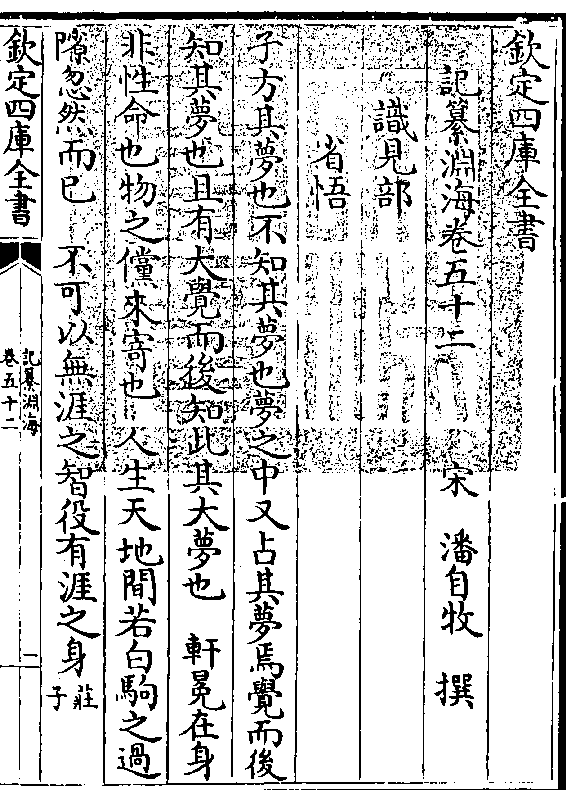 欽定四庫全書
記纂淵海卷五十二
宋 潘自牧 撰
識見部
省悟
子方其夢也不知其夢也夢之中又占其夢焉覺而後
知其夢也且有大覺而後知此其大夢也 軒冕在身
非性命也物之儻來寄也 人生天地間若白駒之過
隙忽然而已 不可以無涯之智役有涯之身莊子
欽定四庫全書
記纂淵海
卷五十二
一